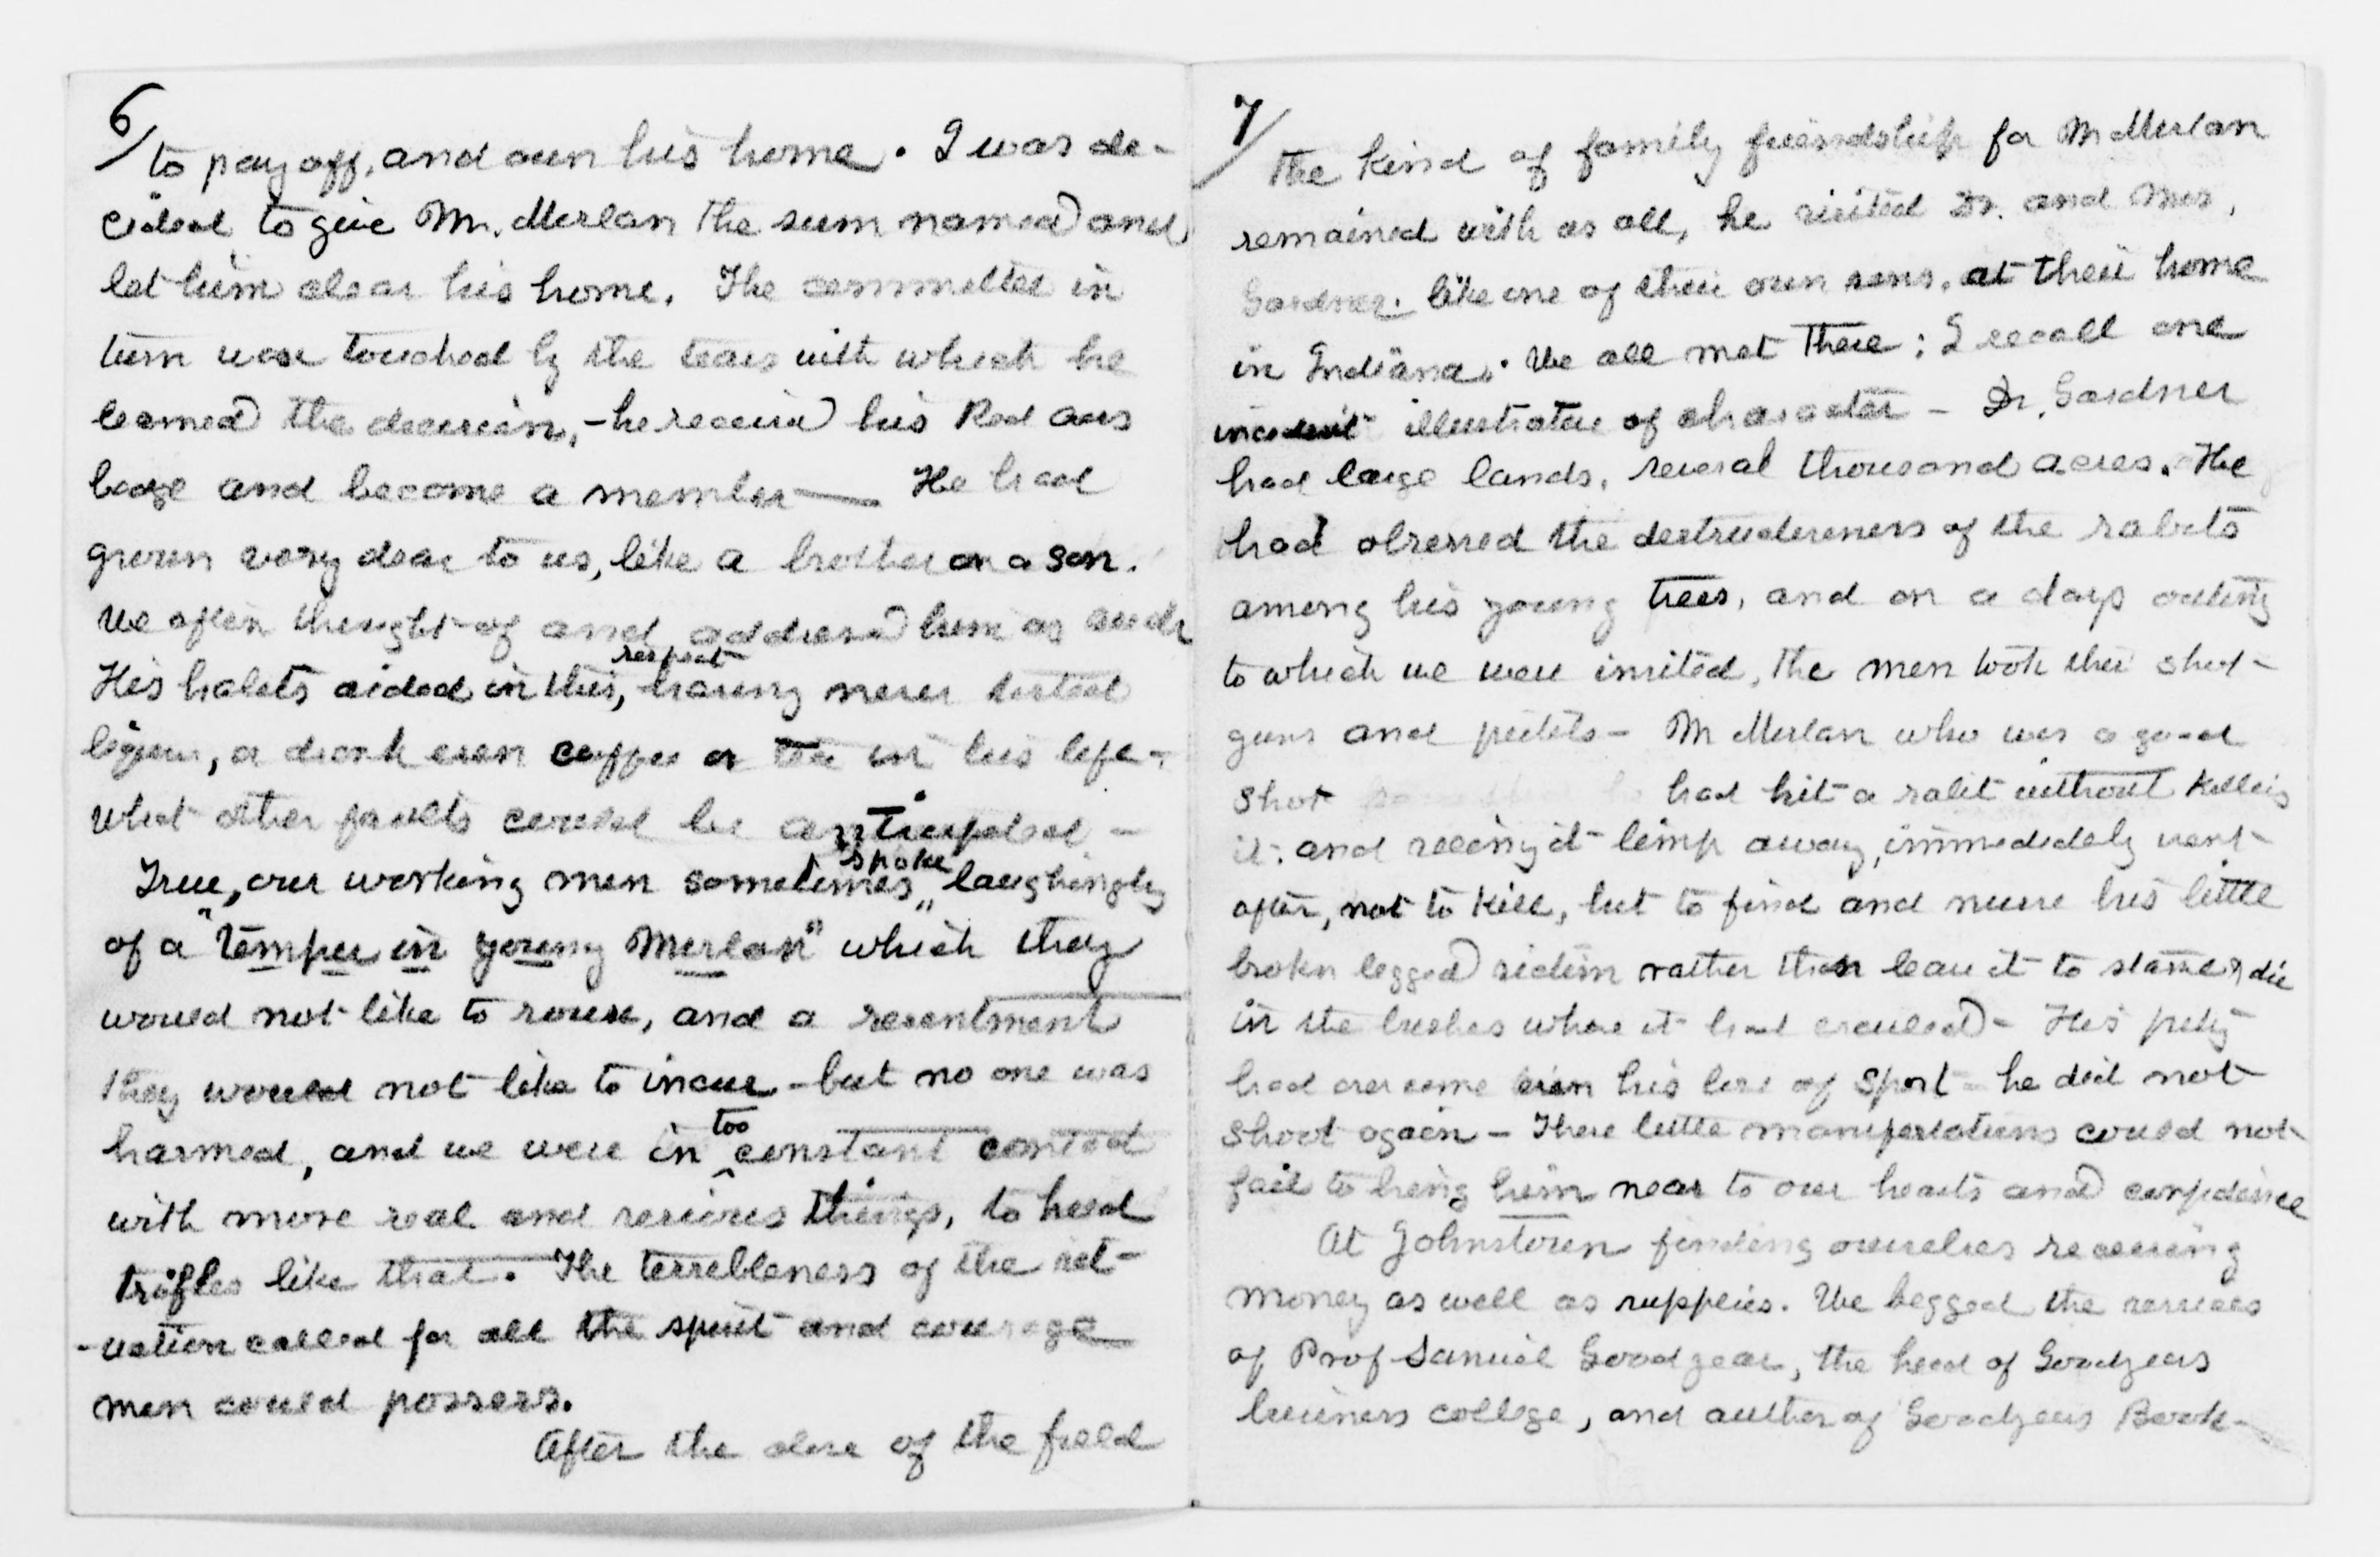 6/
to pay off, and own his home. I was de-
cided to give Mr. Merlan the sum named and
let him clear his home. The committee in
turn was touched by the tears with which he
learned the decision, - he received his Red cross
badge and become a member — He had
grown very dear to us, like a brother or a son.
We often thought of and addressed him as such
His habits aided in this, respect having never tasted
liquor, or drank even coffee or tea in his life -
what other faults could be anticipated -
True, our working men sometimes, spoke laughingly
of a "temper in young Merlan" which they
would not like to rouse, and a resentment
they would not like to incur - but no one was
harmed, and we were in too constant contact
with more real and serious things, to heed
trifles like that. The terribleness of the sit-
-uation called for all the spirit and courage
men could possess.
After the close of the field
7/
The kind of family friendship for Mr Merlan
remained with us all, he visited Dr. and Mrs.
Gardner. like one of their own sons, at their home
in Indiana. We all met there; I recall one
incident illustrative of character - Dr. Gardner
had large lands, several thousand acres. He
had observed the destructiveness of the rabits
among his young trees, and on a days outing
to which we were invited, the men took their shot-
guns and pistols - Mr Merlan who was a good
shot had hit a rabit without killing
it. and seeing it limp away, immediately went
after, not to kill, but to find and nurse his little
broken legged victim rather than leave it to starve & die
in the bushes where it had crawled - His pity
had over come even his love of sport - he did not
shoot again - These little manifestations could not
fail to bring him near to our hearts and confidence
At Johnstown finding ourselves receiving
money as well as supplies. We begged the services
of Prof Samuel Goodyear, the head of Goodyears
business college, and author of Goodyears Book-